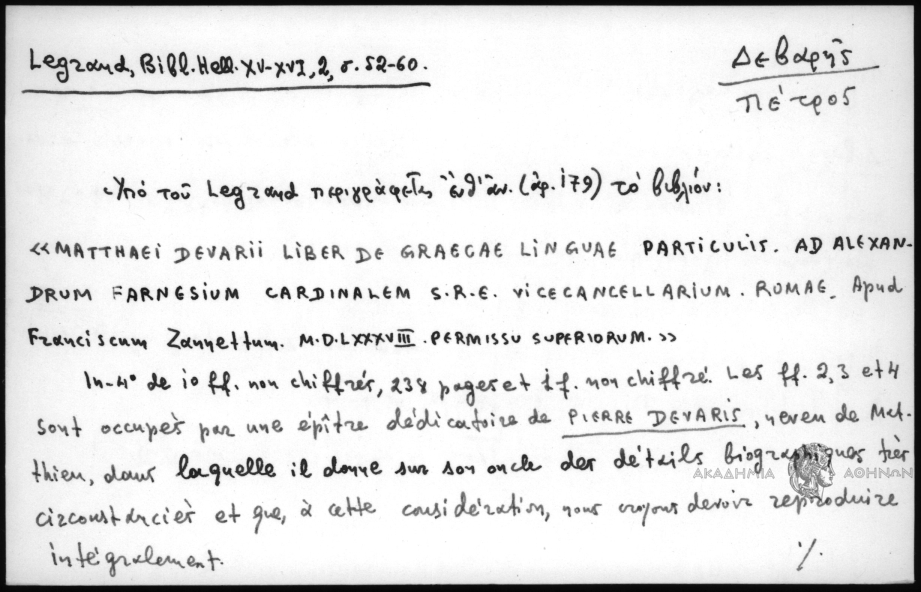 Legrand, Bibl. Hell. XV-XVI, 2, σ. 52-60.
Δεβαρῆς
Πέτρος
Ὑπό τοῦ Legrand περιγράφεται ἐνθ' ἀν. (ἀρ. 179) τό βιβλίον:
«MATTHAEI DEVARII LIBER DE GRAECAE LINGUAE PARTICULIS. AD ALEXAN-
DRUM FARNESIUM CARDINALEM S.R.E. VICECANCELLARIUM. ROMAE. Apud
Franciscum Zannettum. M.D.LXXXVIII. PERMISSU SUPERIORUM.»
In-4° de 10 ff. non chiffrés, 238 pages et 1 f. non chiffré. Les ff. 2, 3 et 4
sont occupés par une épître dédicatoire de PIERRE DEVARIS, neveu de Mat-
thieu, dans laquelle il donne sur son oncle des détails biographiques très
ΑΚΑΔΗΜΙΑ ΑΘΗΝΩΝ
circonstanciés et que, à cette considération, nous croyons devoir reproduire
intégralement.
./.